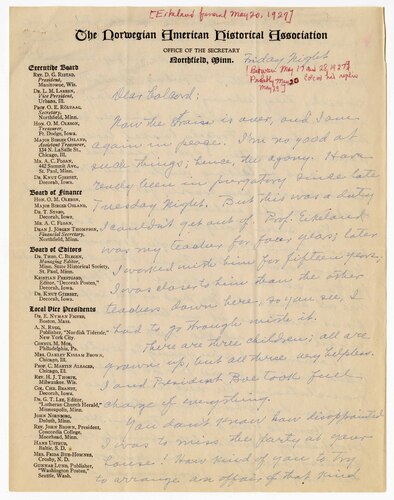 [Eikeland funeral May 20, 1927]
The Norwegian American Historical Association
OFFICE OF THE SECRETARY
Northfield, Minn.
Friday Night
[Between May 17 and 28, 1927?
Probably May 20
May 20]
Executive Board
REV. D. G. RISTAD,
President,
Manitowoc, Wis.
DR. L. M. LARSEN,
Vice President,
Urbana, Ill.
PROF. O. E. RÖLVAAG,
Secretary,
Northfield, Minn.
HON. O. M. OLESON,
Treasurer,
Ft. Dodge, Iowa.
MAJOR BIRGER OSLAND,
Assistant Treasurer,
134 N. LaSalle St.,
Chicago, Ill.
MR. A. C. FLOAN,
442 Summit Ave.,
St. Paul, Minn.
DR. KNUT GJERSET,
Decorah, Iowa.
Board of Finance
HON. O. M. OLESON,
MAJOR BIRGER OSLAND,
DR. T. STABO,
Decorah, Iowa.
MR. A. C. FLOAN,
DEAN J. JÖRGEN THOMPSON,
Financial Secretary,
Northfield, Minn.
Board of Editors
DR. THEO. C. BLEGEN,
Managing Editor,
Minn. State Historical Society,
St. Paul, Minn.
KRISTIAN PRESTGARD,
Editor, "Decorah Posten,"
Decorah, Iowa.
DR. KNUT GJERSET,
Decorah, Iowa.
Local Vice Presidents
DR. E. NYMAN FIGVED,
Boston, Mass.
A. N. RYGG,
Publisher, "Nordisk Tidende,"
New York City.
CONSUL M. MOE,
Philadelphia, Pa.
MRS. OAKLEY KISSAM BROWN,
Chicago, Ill.
PROF. C. MARTIN ALSAGER,
Chicago, Ill.
REV. H. J. THORPE,
Milwaukee, Wis.
COL. CHR. BRANDT,
Decorah, Iowa.
DR. G. T. LEE, Editor,
"Lutheran Church Herald,"
Minneapolis, Minn.
JOHN NORDBERG,
Duluth, Minn.
REV. JOHN BROWN, President,
Concordia College,
Moorhead, Minn.
HANS USTRUD,
Baltic, S. D.
MRS. FRIDA BUE-HOMNES,
Crosby, N. D.
GUNNAR LUND, Publisher,
"Washington Posten,"
Seattle, Wash.
Dear Colcord:
Now the strain is over, and I am
again in peace. I'm no good at
such things; hence, the agony. Have
really been in purgatory since late
Tuesday Night. But this was a duty
I couldn't get out of. Prof. Eikeland
was my teacher for four years; later
I worked with him for fifteen years;
I was closer to him than the other
teachers down here, so you see, I
had to go through with it.
There are three children; all are
grown up, but all three very helpless.
I and President Boe took full
charge of everything.
You don't know how disappointed
I was to miss the party at your
house! How kind of you to try
to arrange an affair of that kind